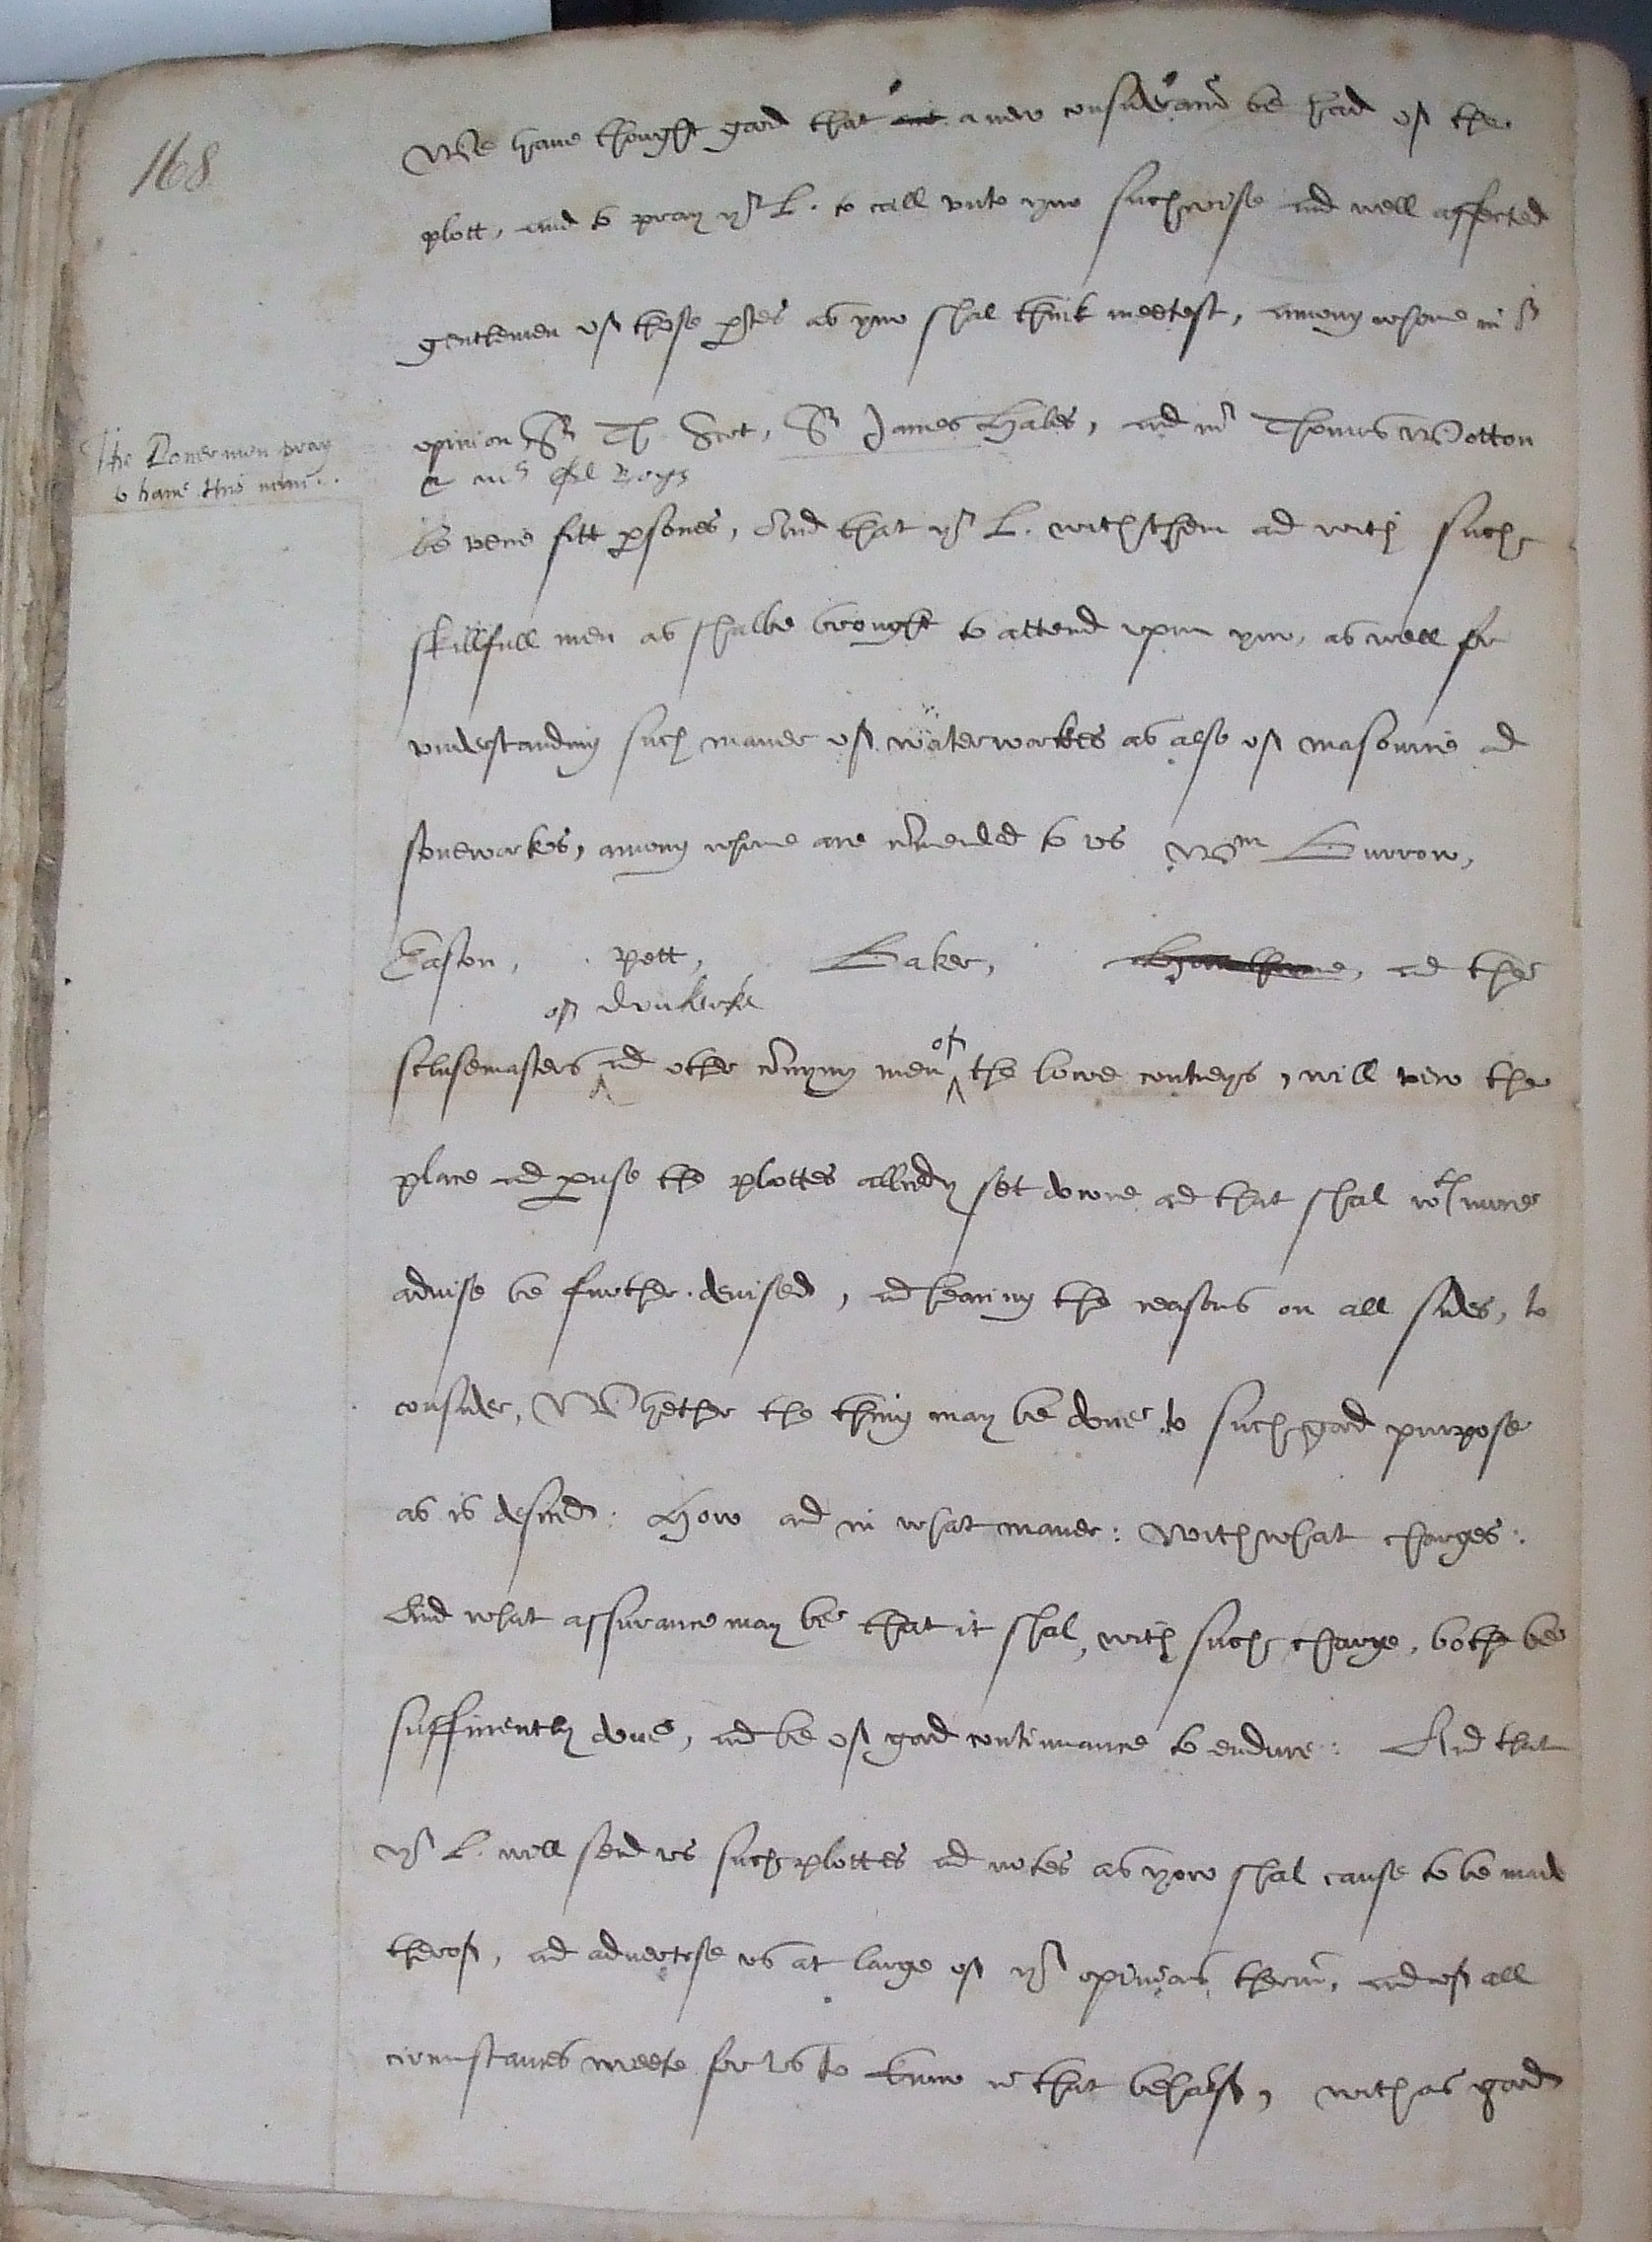 168
We haue thought good that a new considerand be had of the
plott, and to pray yor L. to call vnto yow such wise and well affected
gentlemen of those ptes as yow shal think meetest, among whome in
opinion Sr Th. Scot, Sr James Hales, and mr Thomas Wotton
& mr Boys
The Douer men pray
to haue this
be verie fitt psones, And that yor L. with them ad with such
skillfull men as shalbe brought to attend vpon yow, as well for
vnderstanding such maner of waterworkes as also of masonrie ad
stoneworkes, among whome are comended to vs Wm Burrow,
Easton, Pett, Baker, ad the
of Dunkerke
sclusemasters ad other connyng men of the lowe contreys, will view the
place ad pvse the plottes allredy set downe ad that shal wth more
aduise be further deuised, ad hearing the reasons on all sides, to
consider, Whether the thing may be done to such good purpose
as is desired: How and in what maner: With what charges:
And what assurance may be that it shal, with such charge, bothe be
sufficiently done, ad be of good continuance to endure: And that
yor L. will send vs such plottes ad notes as yow shal cause to be mad
therof, ad aduertise vs at large of yor opinions therin, ad of all
circumstances meete for vs to know in that behalf, with as good